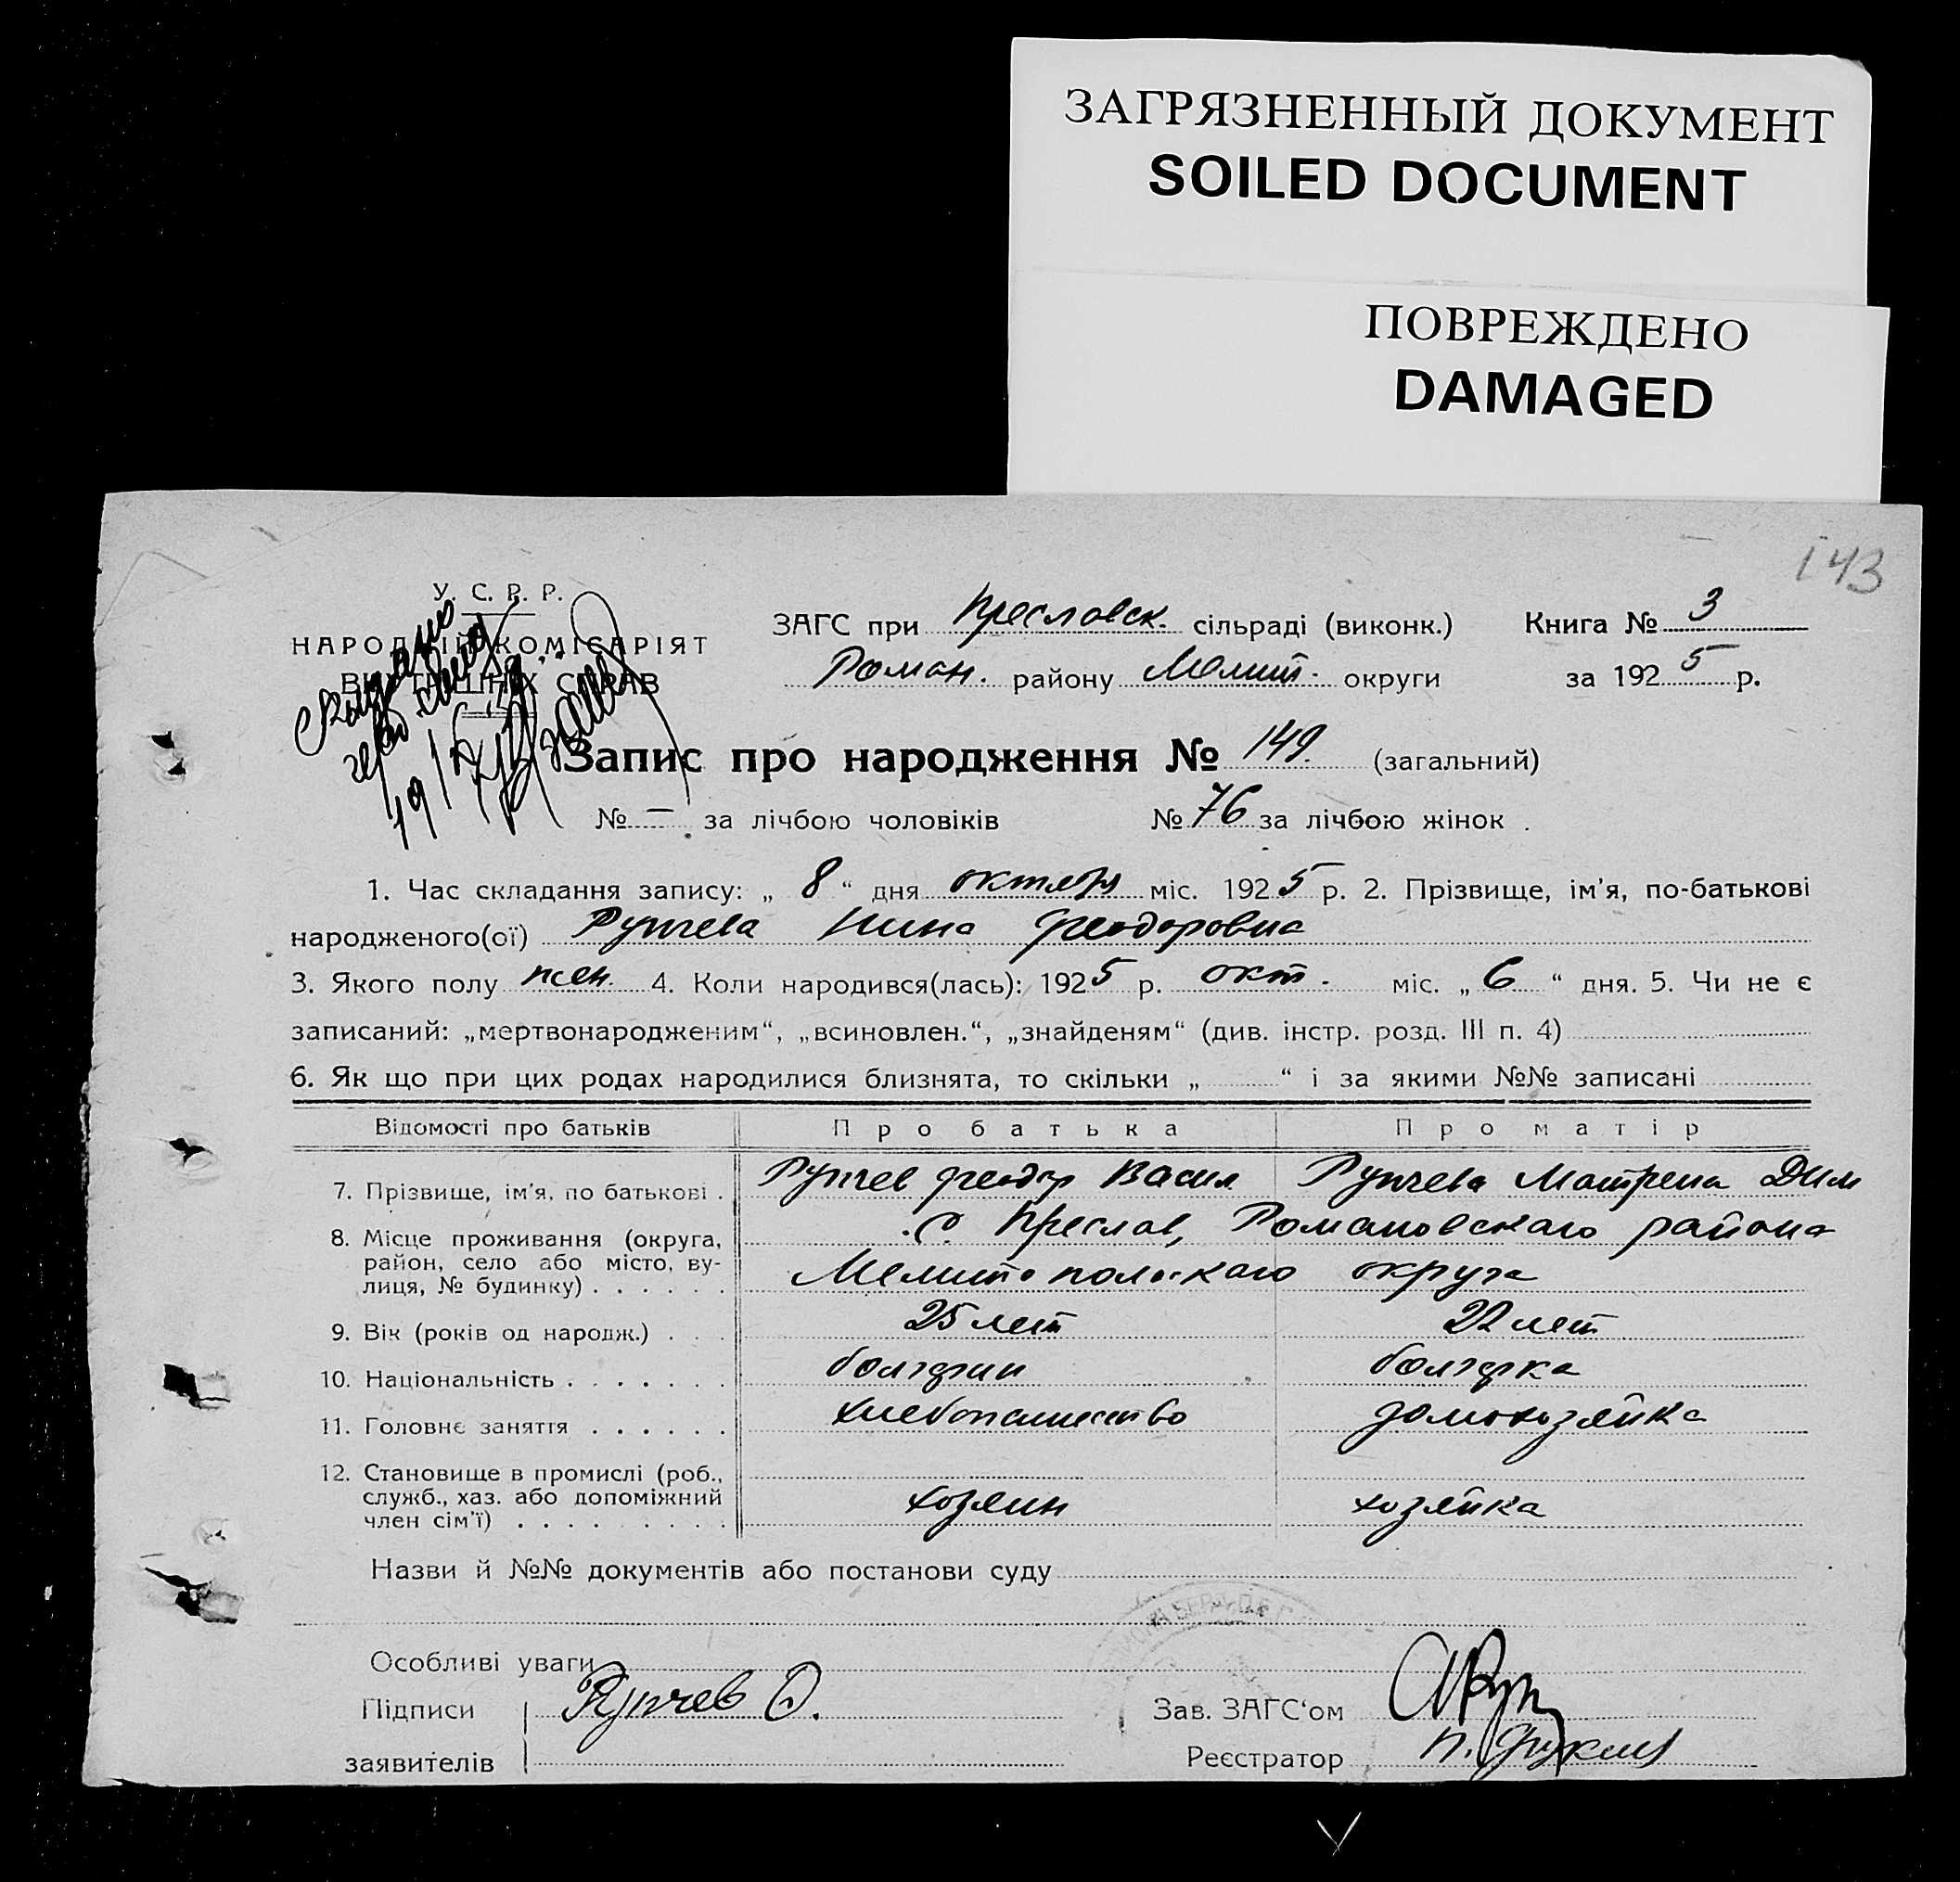 ЗАГРЯЗНЕННЫЙ ДОКУМЕНТ
SOILED DOCUMENT
ПОВРЕЖДЕНО
DAMAGED
143
У. С. Р. Р.
НАРОДНІЙ КОМІСАРІЯТ
ВНУТРІШНІХ СПРАВ
ЗАГС при Пресловск. сільраді (виконк.) Книга № 3
Роман. району Мелит. округи за 1925 р.
Запис про народження № 149. (загальний)
№ — за лічбою чоловіків № 76 за лічбою жінок
1. Час складання запису: „ 8 “ дня октября міс. 1925 р. 2. Прізвище, ім'я, по-батькові
народженого(ої) Рупчева Нина Феодоровна
3. Якого полу жен. 4. Коли народився(лась): 1925 р. окт. міс. „ 6 “ дня. 5. Чи не є
записаний: „мертвонародженим“, „всиновлен.“, „знайденям“ (див. інстр. розд. III п. 4)
6. Як що при цих родах народилися близнята, то скільки „ “ і за якими №№ записані
Відомості про батьків Про батька Про матір
7. Прізвище, ім'я, по батькові . Рупчев Феодор Васил Рупчева Матрена Дим
8. Місце проживання (округа, с. Преслав, Романовскаго района
район, село або місто, ву-
лиця, № будинку) . . . . . . Мелитопольскаго округа
9. Вік (років од народж.) . . . 25 лет 22 лет
10. Національність . . . . . . . болгарин болгарка
11. Головне заняття . . . . . . хлебопашество домохозяйка
12. Становище в промислі (роб.,
служб., хаз. або допоміжний хозяин хозяйка
член сім'ї) . . . . . . . . .
Назви й №№ документів або постанови суду
Особливі уваги
Підписи Рупчев Ф. Зав. ЗАГС‘ом
заявителів Реєстратор П.